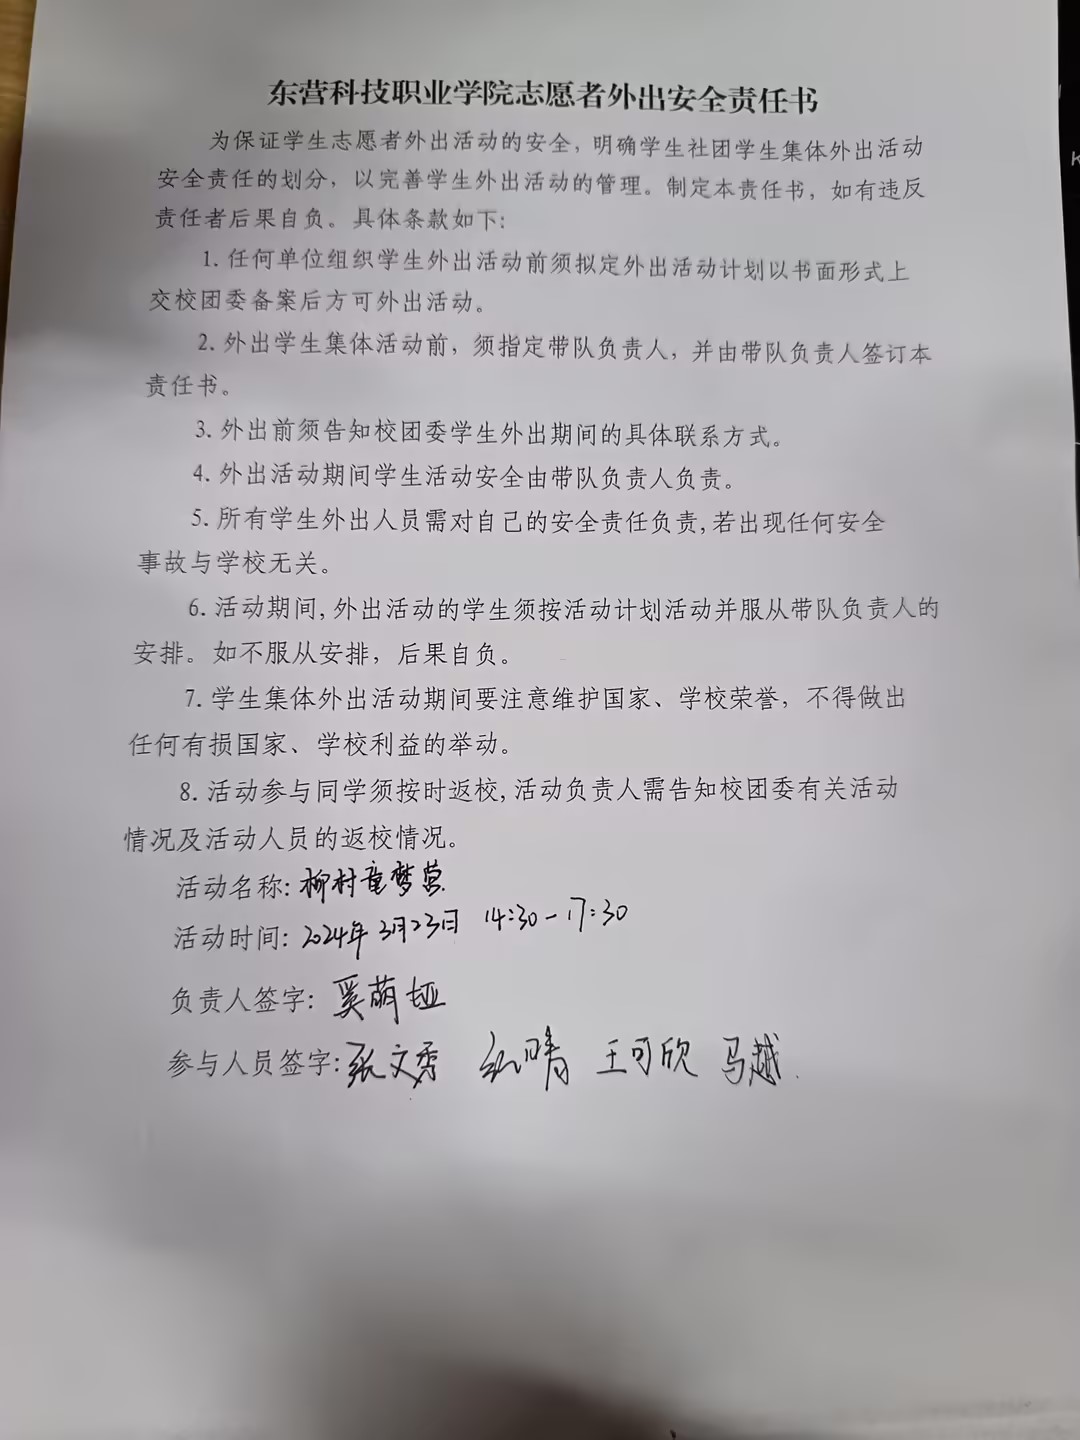 东营科技职业学院志愿者外出安全责任书
为保证学生志愿者外出活动的安全，明确学生社团学生集体外出活动
安全责任的划分，以完善学生外出活动的管理。制定本责任书，如有违反
责任者后果自负。具体条款如下：
1. 任何单位组织学生外出活动前须拟定外出活动计划以书面形式上
交校团委备案后方可外出活动。
2. 外出学生集体活动前，须指定带队负责人，并由带队负责人签订本
责任书。
3. 外出前须告知校团委学生外出期间的具体联系方式。
4. 外出活动期间学生活动安全由带队负责人负责。
5. 所有学生外出人员需对自己的安全责任负责,若出现任何安全
事故与学校无关。
6. 活动期间,外出活动的学生须按活动计划活动并服从带队负责人的
安排。如不服从安排，后果自负。
7. 学生集体外出活动期间要注意维护国家、学校荣誉，不得做出
任何有损国家、学校利益的举动。
8. 活动参与同学须按时返校,活动负责人需告知校团委有关活动
情况及活动人员的返校情况。
活动名称：柳村童梦营
活动时间：2024年3月23日 14:30-17:30
负责人签字：奚萌娅
参与人员签字：张文秀 晴 王可欣 马越